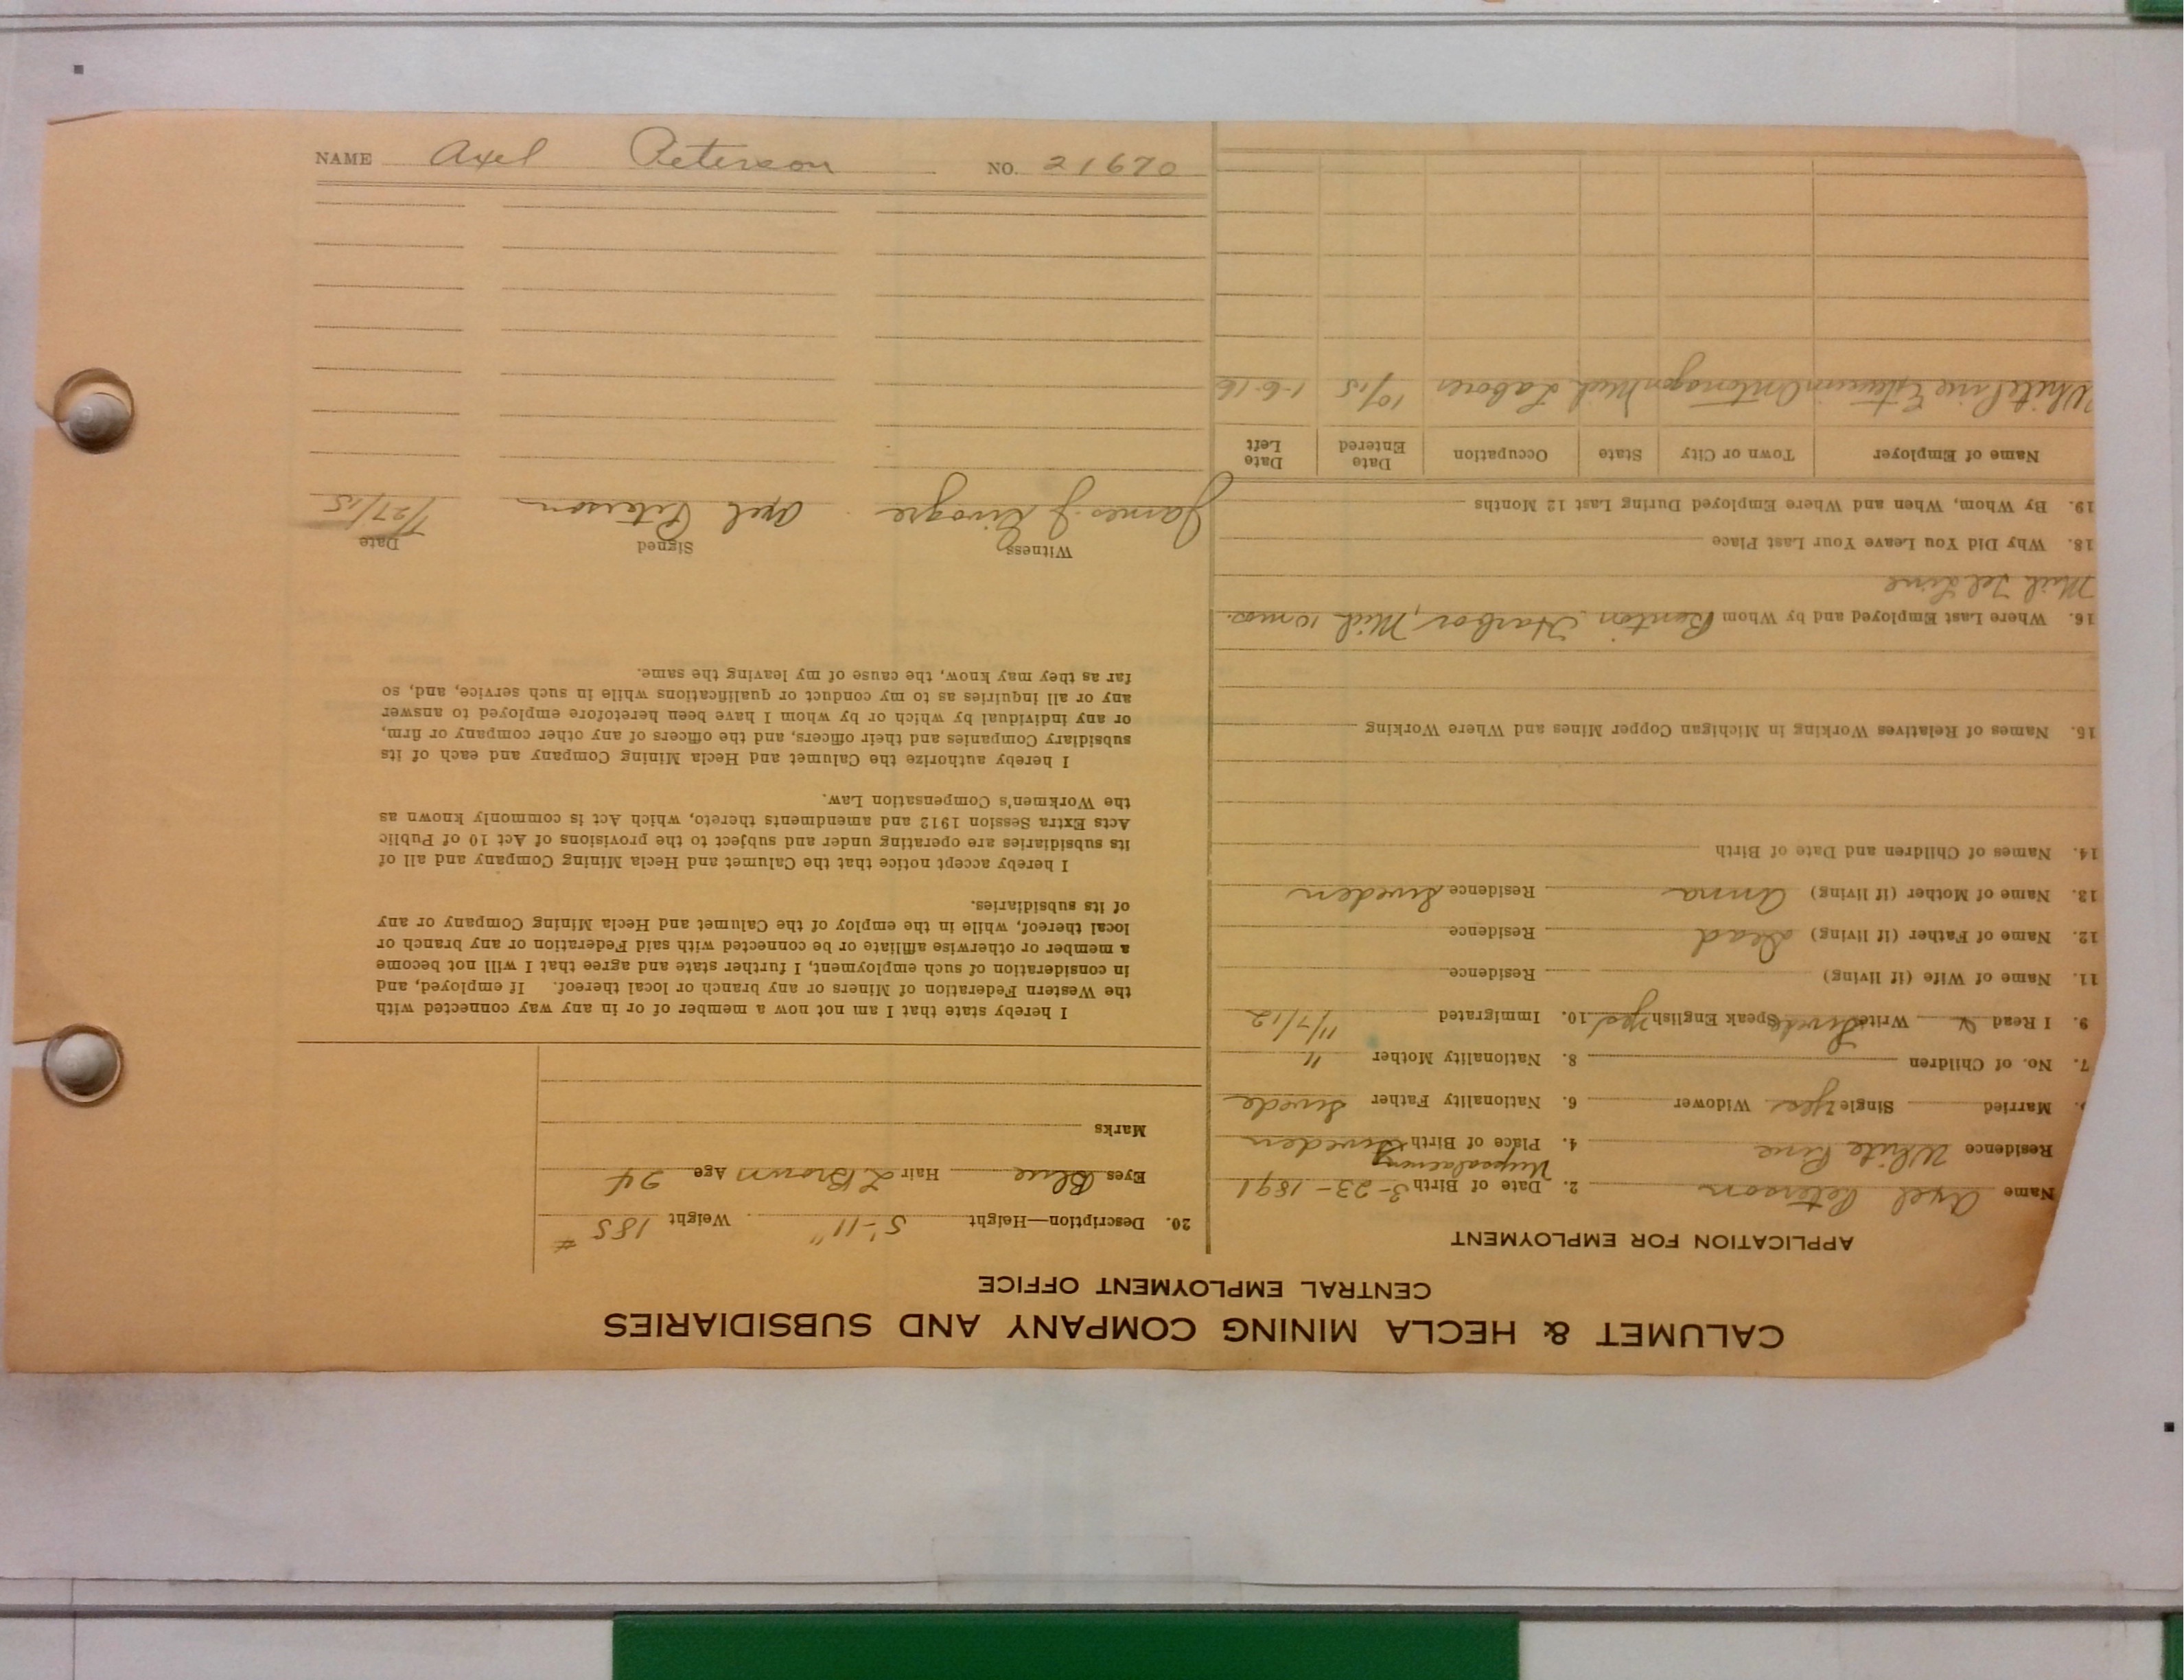 CALUMET & HECLA MINING COMPANY AND SUBSIDIARIES
CENTRAL EMPLOYMENT OFFICE
APPLICATION FOR EMPLOYMENT
Name Axel Peterson 2. Date of Birth 3-23-1891
Residence White Pine 4. Place of Birth Sweden
Married Single Yes Widower 6. Nationality Father Swede
7. No. of Children 8. Nationality Mother "
9. I Read Write Swede Speak English Yes 10. Immigrated 11/7/12
11. Name of Wife (if living) Residence
12. Name of Father (if living) Dead Residence
13. Name of Mother (if living) Anna Residence Sweden
14. Names of Children and Date of Birth
15. Names of Relatives Working in Michigan Copper Mines and Where Working
16. Where Last Employed and by Whom Benton Harbor, Mich 10 mos.
Mich Tel Line
18. Why Did You Leave Your Last Place
19. By Whom, When and Where Employed During Last 12 Months
Name of Employer Town or City State Occupation Date Entered Date Left
White Pine Extension Ontonagon Mich Laborer 10/15 1-6-16
20. Description—Height 5'-11" Weight 185 #
Eyes Blue Hair L Brown Age 24
Marks
I hereby state that I am not now a member of or in any way connected with
the Western Federation of Miners or any branch or local thereof. If employed, and
in consideration of such employment, I further state and agree that I will not become
a member or otherwise affiliate or be connected with said Federation or any branch or
local thereof, while in the employ of the Calumet and Hecla Mining Company or any
of its subsidiaries.
I hereby accept notice that the Calumet and Hecla Mining Company and all of
its subsidiaries are operating under and subject to the provisions of Act 10 of Public
Acts Extra Session 1912 and amendments thereto, which Act is commonly known as
the Workmen's Compensation Law.
I hereby authorize the Calumet and Hecla Mining Company and each of its
subsidiary Companies and their officers, and the officers of any other company or firm,
or any individual by which or by whom I have been heretofore employed to answer
any or all inquiries as to my conduct or qualifications while in such service, and, so
far as they may know, the cause of my leaving the same.
Witness Signed Date
James J. Axel Peterson 7/27/15
NAME Axel Peterson NO. 21670